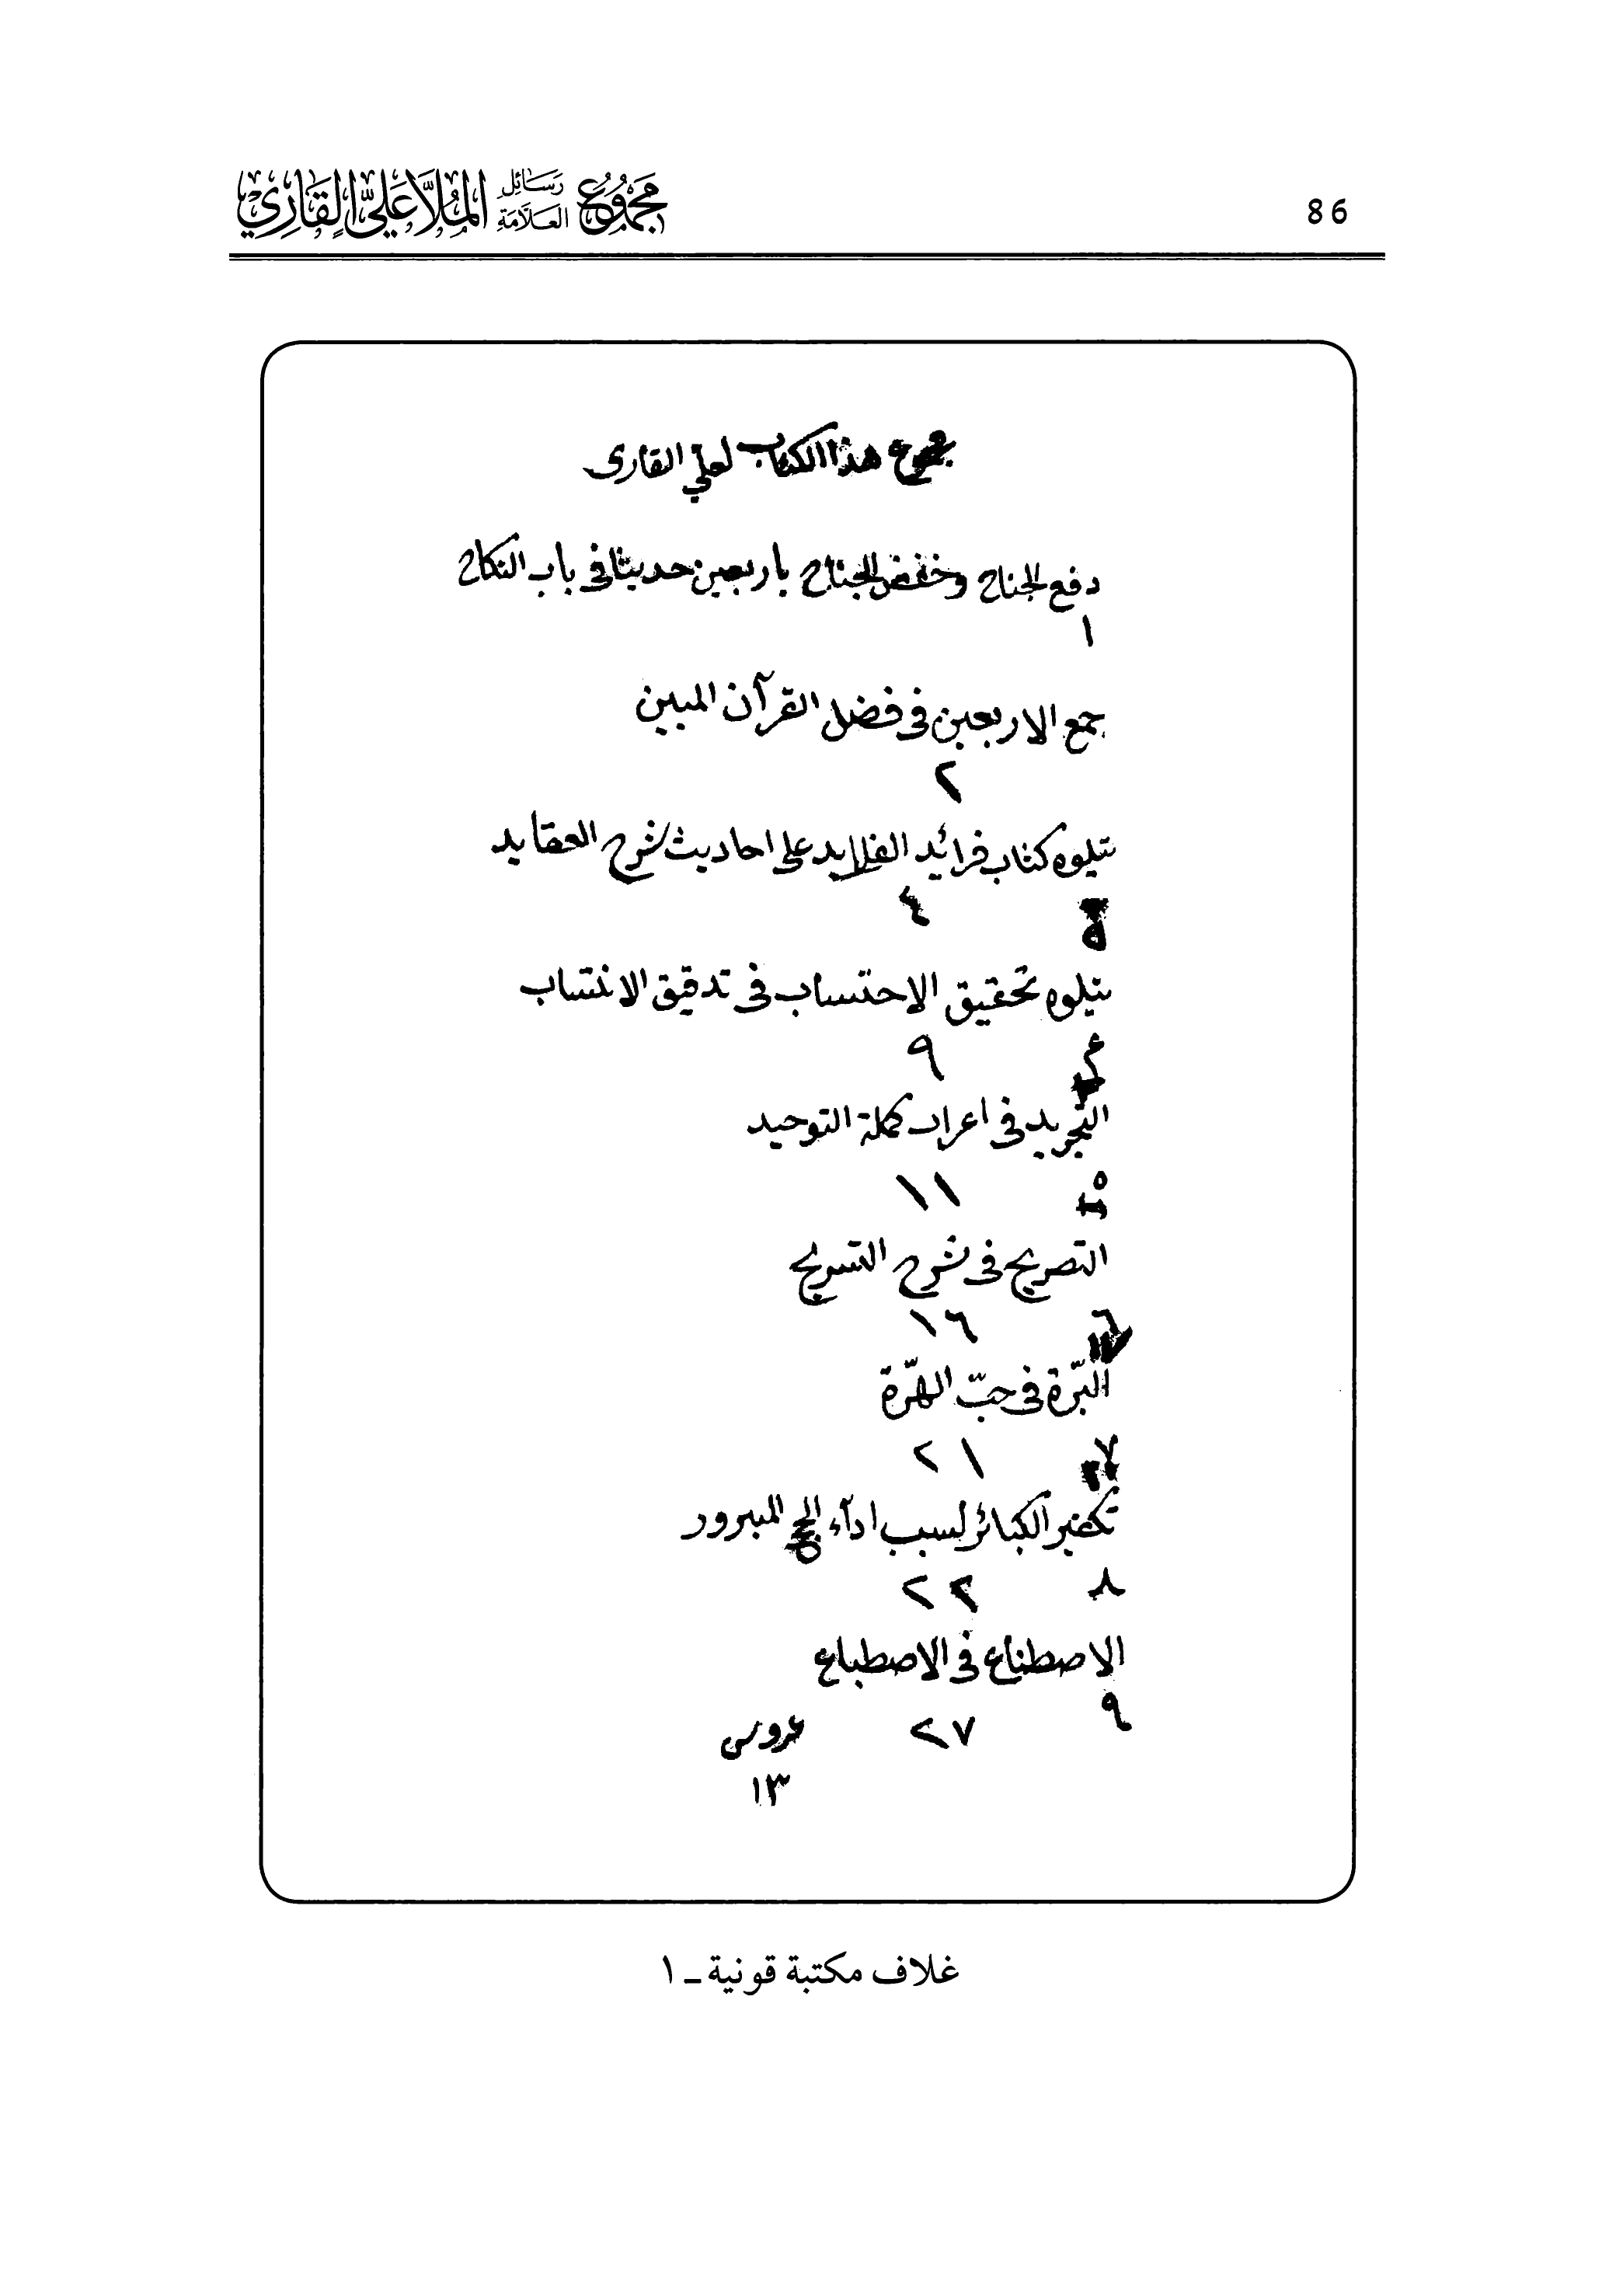 مجموع رسائل العلامة الملا علي القاري
86
مجموع هذا الكتاب لعلي القارى
دفع الجناح وخفض الجناح باربعين حديثا فى باب النكاح
١
جمع الاربعين فى فضل القرآن المبين
٢
يتلوه كتاب فرائد القلايد على احاديث شرح العقايد
٤
يتلوه تحقيق الاحتساب فى تدقيق الانتساب
٤ ٩
التجريد فى اعراب كلمة التوحيد
٥ ١١
التصريح فى شرح التسريح
٦ ١٦
البرّة فى حبّ الهرّة
٧ ٢١
تكفير الكبائر لسبب ادآء الحج المبرور
٨ ٢٢
الاصطناع فى الاصطباع
٩ ٢٧ عروس
١٣
غلاف مكتبة قونية ـ ١